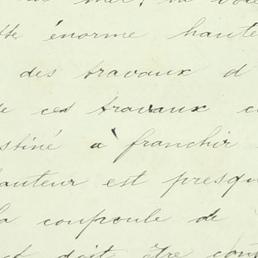 énorme haute
des travaux d
ces travaux c
stiné à franchir
hauteur est presqu
la coupoule de
doit être con